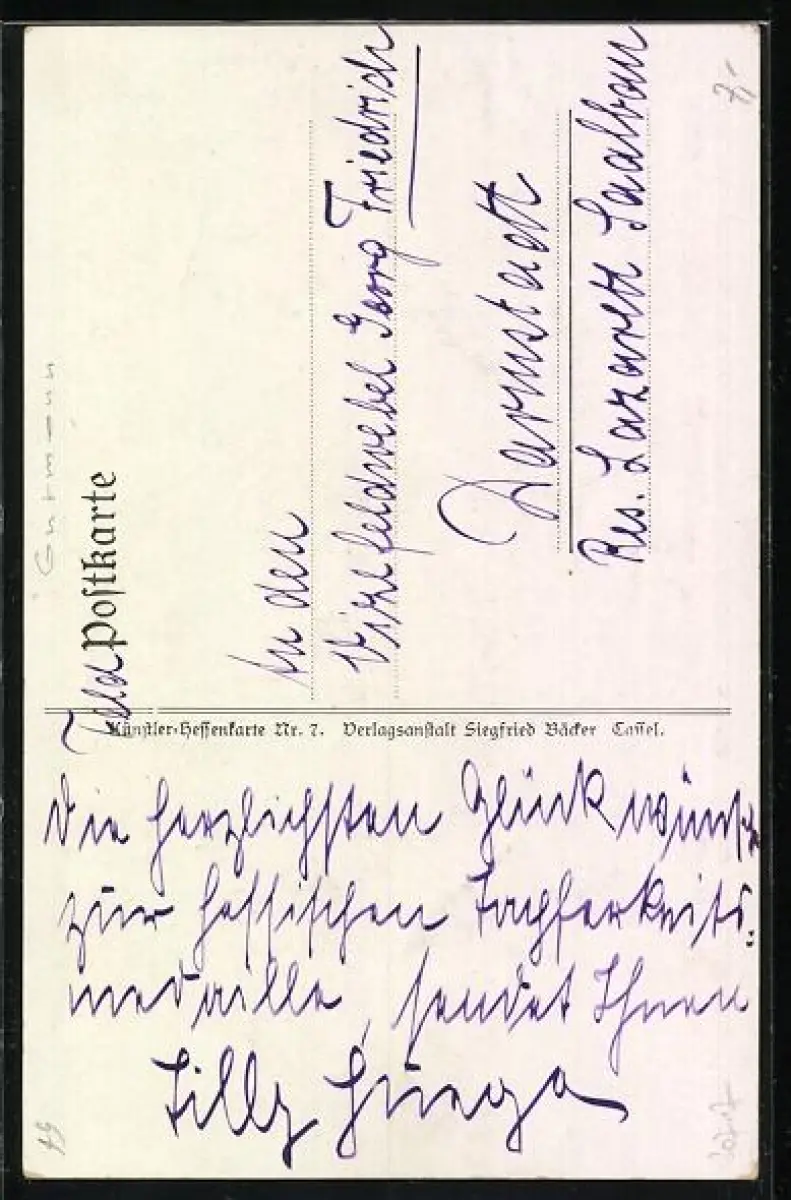 Gutmann
Feld Postkarte
An den
Vizefeldwebel Georg Friedrich
Darmstadt
Res. Lazarett Saalbau
Künstler-Hessenkarte Nr. 7. Verlagsanstalt Siegfried Bäcker Cassel.
Die herzlichsten Glückwünsche
zur hessischen Tapferkeits-
medaille, sendet Ihnen
Tilly
7,-